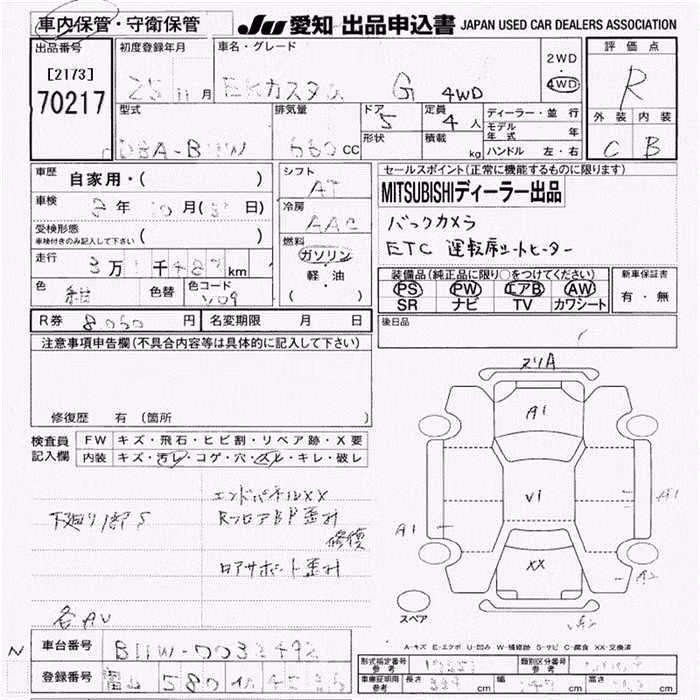 車内保管・守衛保管 JU 愛知 出品申込書 JAPAN USED CAR DEALERS ASSOCIATION
出品番号 初度登録年月 車名・グレード 2WD 評価点
[2173] 25 11月 EKカスタム G 4WD 4WD R
70217
型式 排気量 ドア 定員 ディーラー・並行 外装 内装
660CC 5 4人 モデル年式 年 C B
形状 積載 kg ハンドル 左・右
車歴 自家用・( ) シフト AT セールスポイント(正常に機能するものに限ります)
車検 年 月( 日) 冷房 AAC MITSUBISHIディーラー出品
受検形態 ( ) バックカメラ
車検付きのみ記入して下さい 燃料 ETC 運転席シートヒーター
走行 3万 千 km ガソリン
軽・油
( )
装備品(純正品に限り○をつけてください) 新車保証書
PS PW エアB AW 有・無
色 色替 色コード SR ナビ TV カワシート
R券 8,060円 名変期限 月 日 後日品
注意事項申告欄(不具合内容等は具体的に記入して下さい)
修復歴 有 (箇所
検査員 FW キズ・飛石・ヒビ割・リペア跡・X要
記入欄 内装 キズ・汚レ・コゲ・穴・スレ・キレ・破レ
エンドパネルXX
下廻り部S RフロアBP歪み
修復
ロアサポート歪み
各AU
スリA
A1
V1
A1 A1
XX A2
スペア
A-キズ E-エクボ U-凹み W-補修跡 S-サビ C-腐食 XX-交換済
N 車台番号 B11W-
登録番号 580
形式指定番号 参考 類別区分番号 参考
車庫証明用 参考 長さ cm 幅 cm 高さ cm